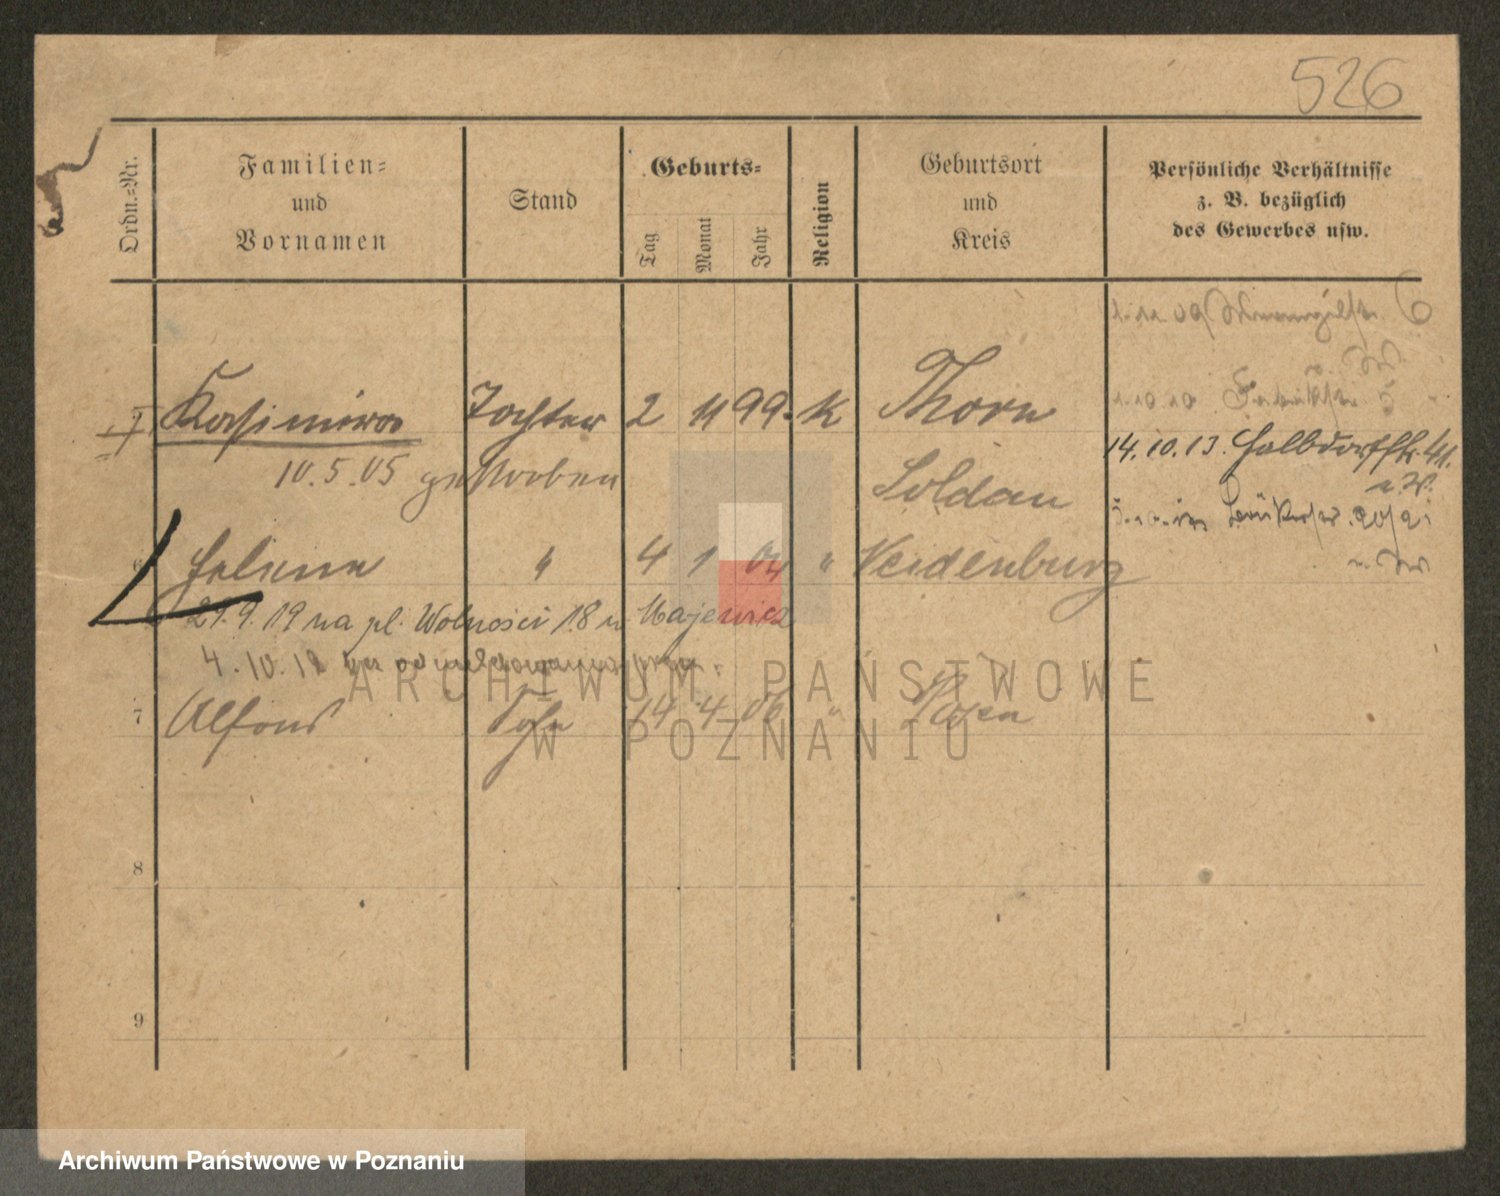 526
Ordn.-Nr.
Familien-
und
Vornamen
Stand
Geburts-
Tag
Monat
Jahr
Religion
Geburtsort
und
Kreis
Persönliche Verhältnisse
z. B. bezüglich
des Gewerbes usw.
1.11.09 6
Kasimira Tochter 2 11 99. K Thorn
1.10.10
14.10.13. Halbdorffstr. 41.
10.5.05 gestorben Soldau
20/21
6 Helene " 4 1 04 " Neidenburg
29.9.19 na pl. Wolności 18 u Majewicz
4.10.19
7 Alfons Sohn 14 4 06 " Posen
8
9
ARCHIWUM PAŃSTWOWE
W POZNANIU
Archiwum Państwowe w Poznaniu